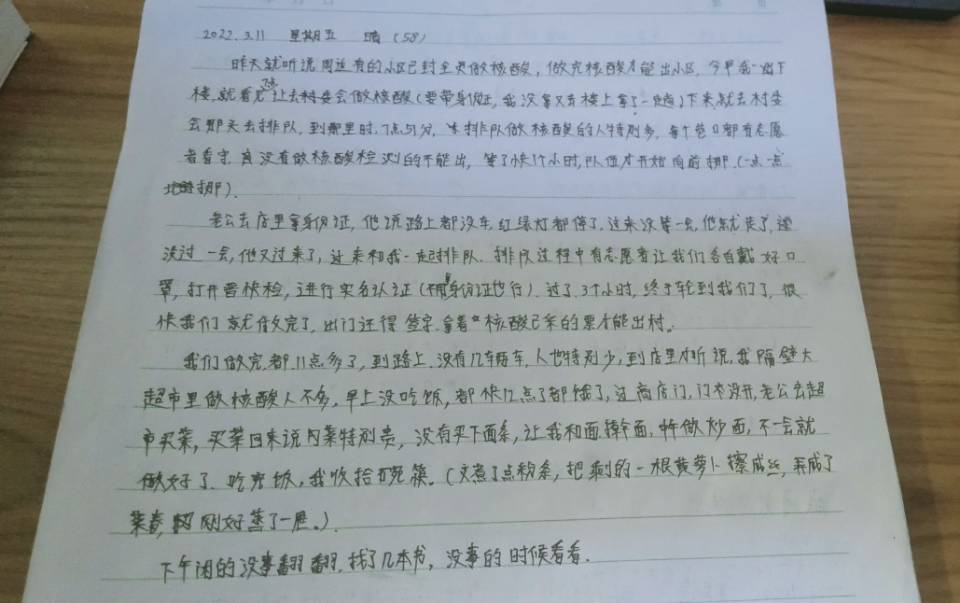 2022.3.11 星期五 晴(58)
昨天就听说周边有的小区已封全员做核酸,做完核酸才能出小区,今早我一下
楼,就看见让去村委会做核酸(要带身份证,我没拿又去楼上拿了一趟)下来就去村委
会那天去排队,到那里时,7点5分,排队做核酸的人特别多,每个巷口都有志愿
者看守,没有做核酸检测的不能出,等了快1个小时,队伍才开始向前挪.(一点一点
地挪).
老公去店里拿身份证,他说路上都没车,红绿灯都停了,过来没等一会,他就走了,
没过一会,他又过来了,过来和我一起排队.排队过程中有志愿者让我们各自戴好口
罩,打开晋快检,进行实名认证(用身份证也行).过了3个小时,终于轮到我们了,很
快我们就做完了,出门还得签字.拿着核酸已采的票才能出村。
我们做完都11点多了,到路上,没有几车辆车,人也特别少,到店里才听说,我隔壁大
超市里做核酸人不多,早上没吃饭,都快12点了都饿了,这商店门,门不没开,老公去超
市买菜,买菜回来说肉菜特别贵,没有买下面条,让我和面,擀面,做炒面,不一会就
做好了.吃完饭,我收拾碗筷.(又煮了点粉条,把剩的一根黄萝卜擦成丝,弄成了
菜卷,刚好蒸了一屉。).
下午闲的没事翻翻,找了几本书,没事的时候看看.